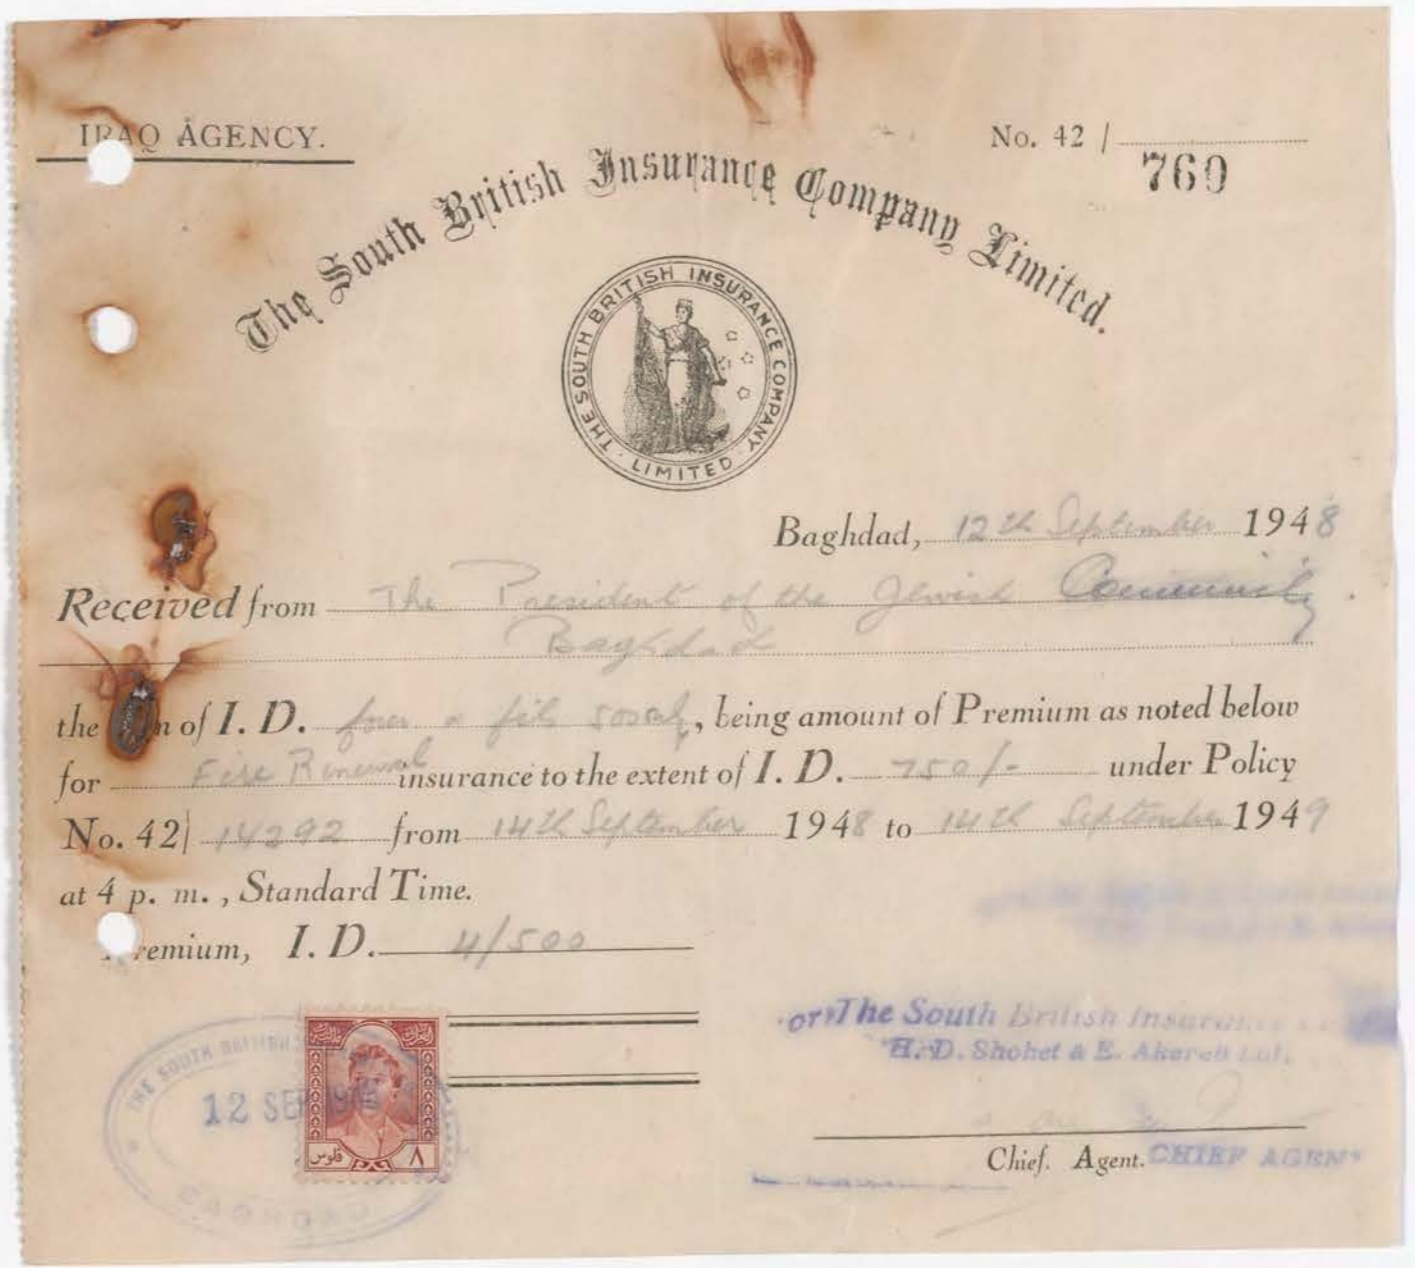 IRAQ AGENCY.
No. 42 /
769
The South British Insurance Company Limited.
THE SOUTH BRITISH INSURANCE COMPANY
LIMITED
Baghdad, 12th September 1948
Received from The President of the Jewish Community.
Baghdad
the of I. D. four & fils 500 only, being amount of Premium as noted below
for Fire Renewal insurance to the extent of I. D. 750/- under Policy
No. 42/ 14292 from 14th September 1948 to 14th September 1949
at 4 p. m., Standard Time.
Premium, I. D. 4/500
The South British Insurance
H. D. Shohet & E. Akereb Ltd.
THE SOUTH BRITISH
12 SEP 1948
BAGHDAD
٨ فلوس
Chief. Agent. CHIEF AGENT